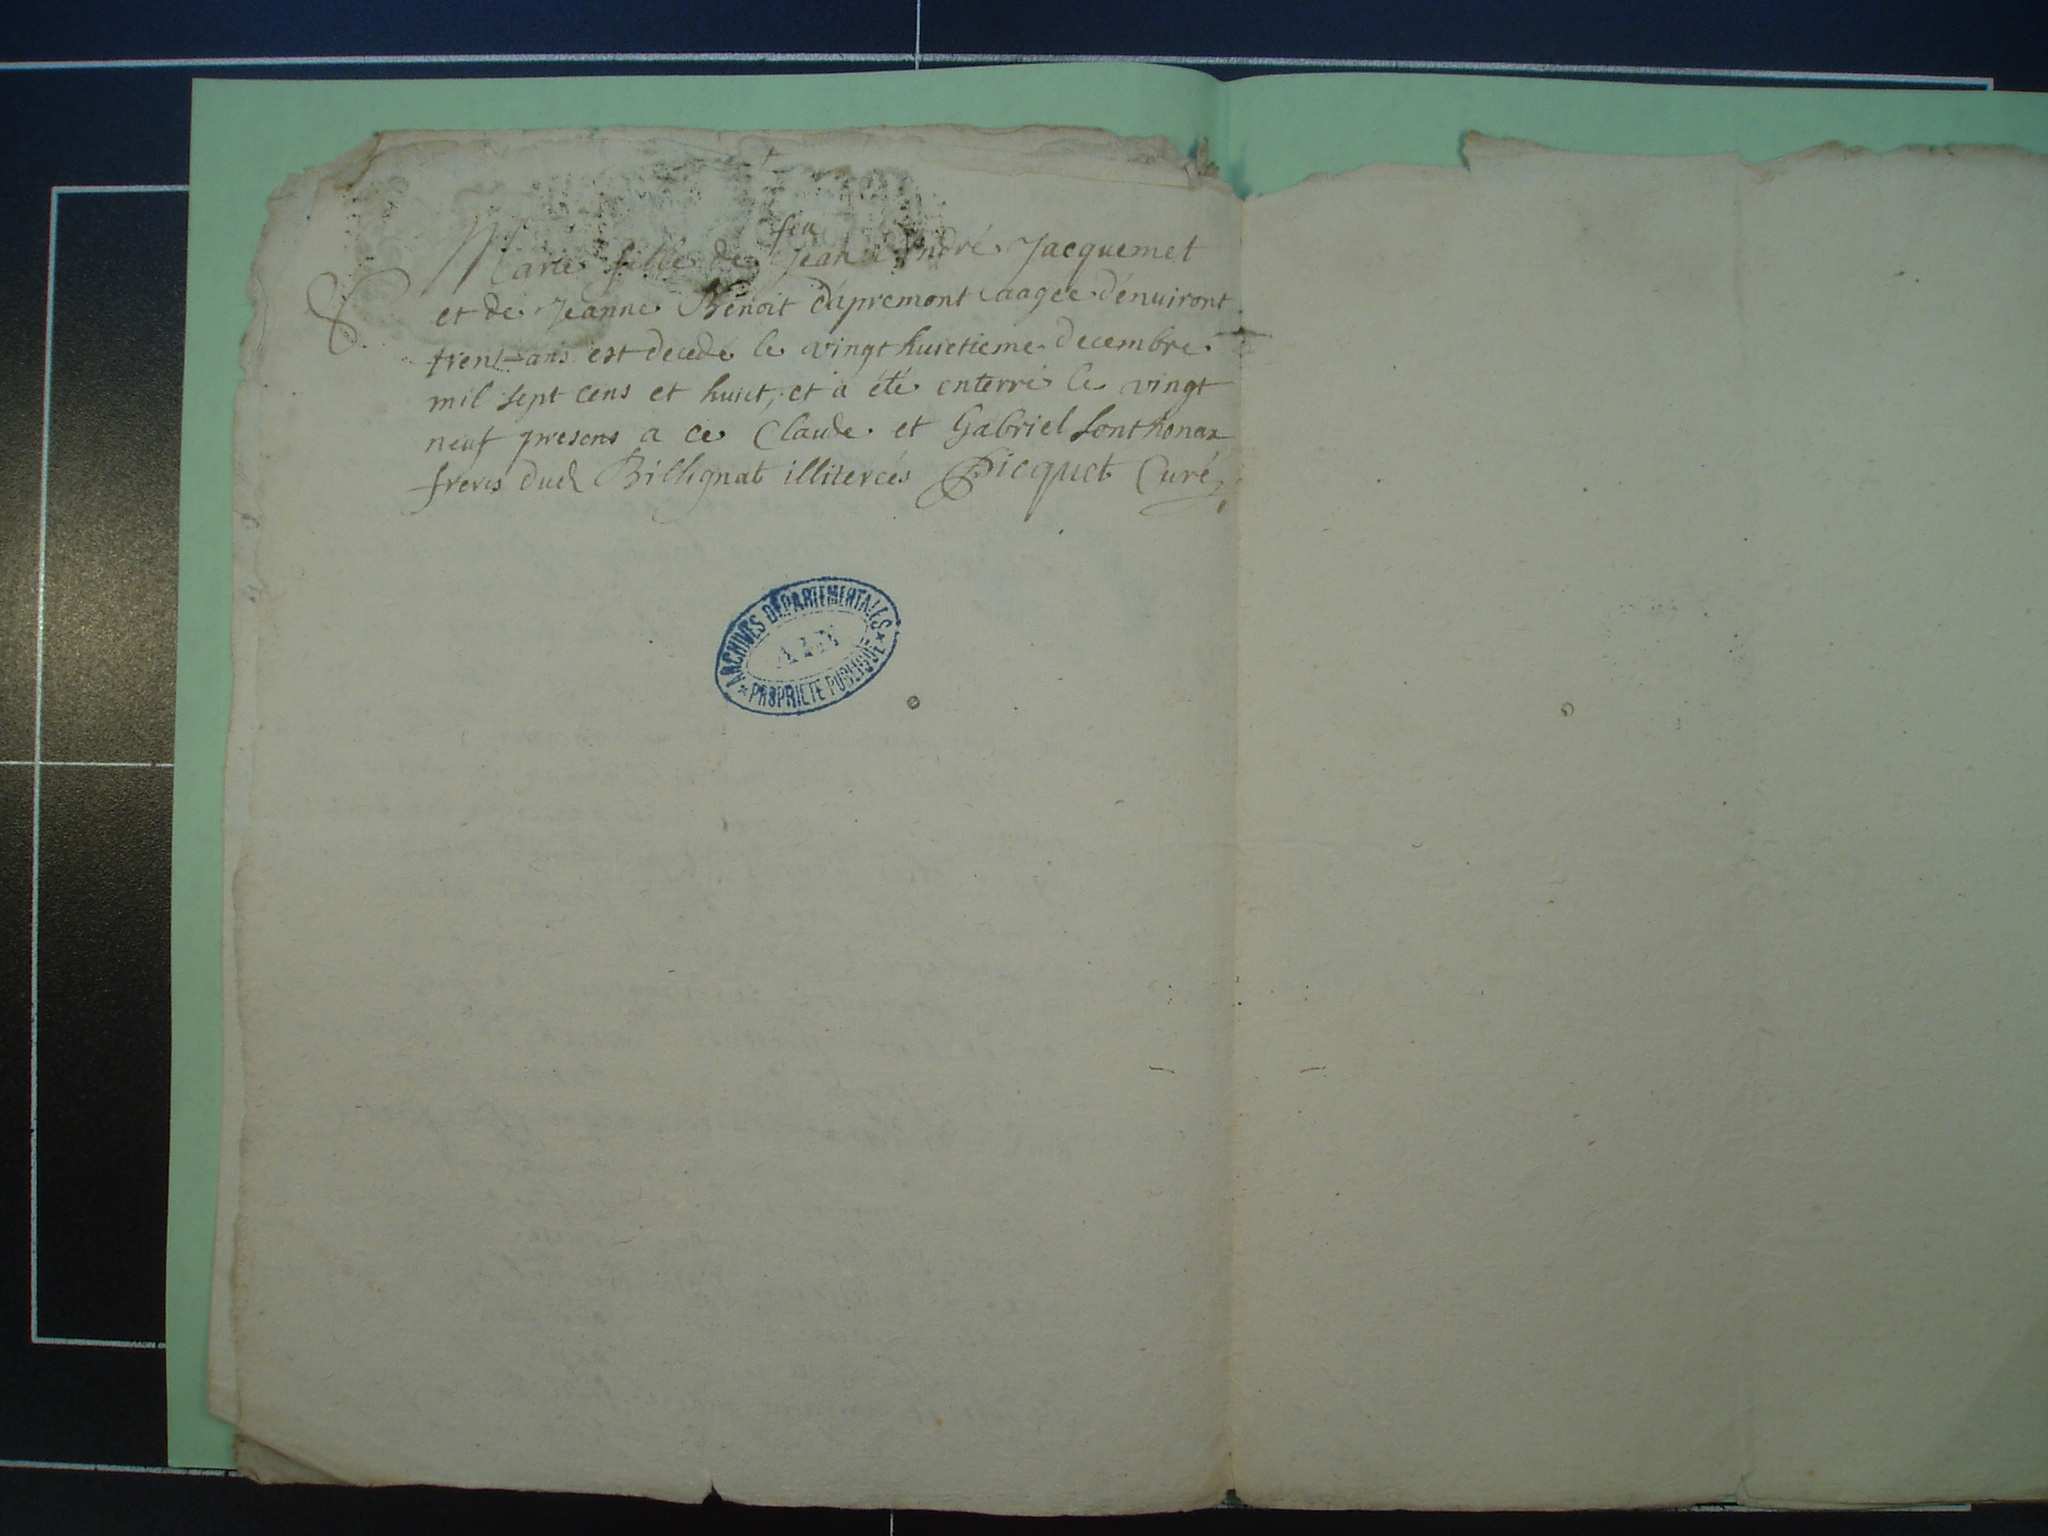 feu
Marie fille de Jean André Jacquemet
et de Jeanne Benoit d'apremont aagée d'enuiront
trent ans est decedé le vingt huictieme decembre
mil sept cens et huict, et a été enterré le vingt
neuf presens a ce Claude et Gabriel Sonthonax
freres dud Billignat illiterées Picquet Curé
ARCHIVES DÉPARTEMENTALES
AIN
PROPRIÉTÉ PUBLIQUE